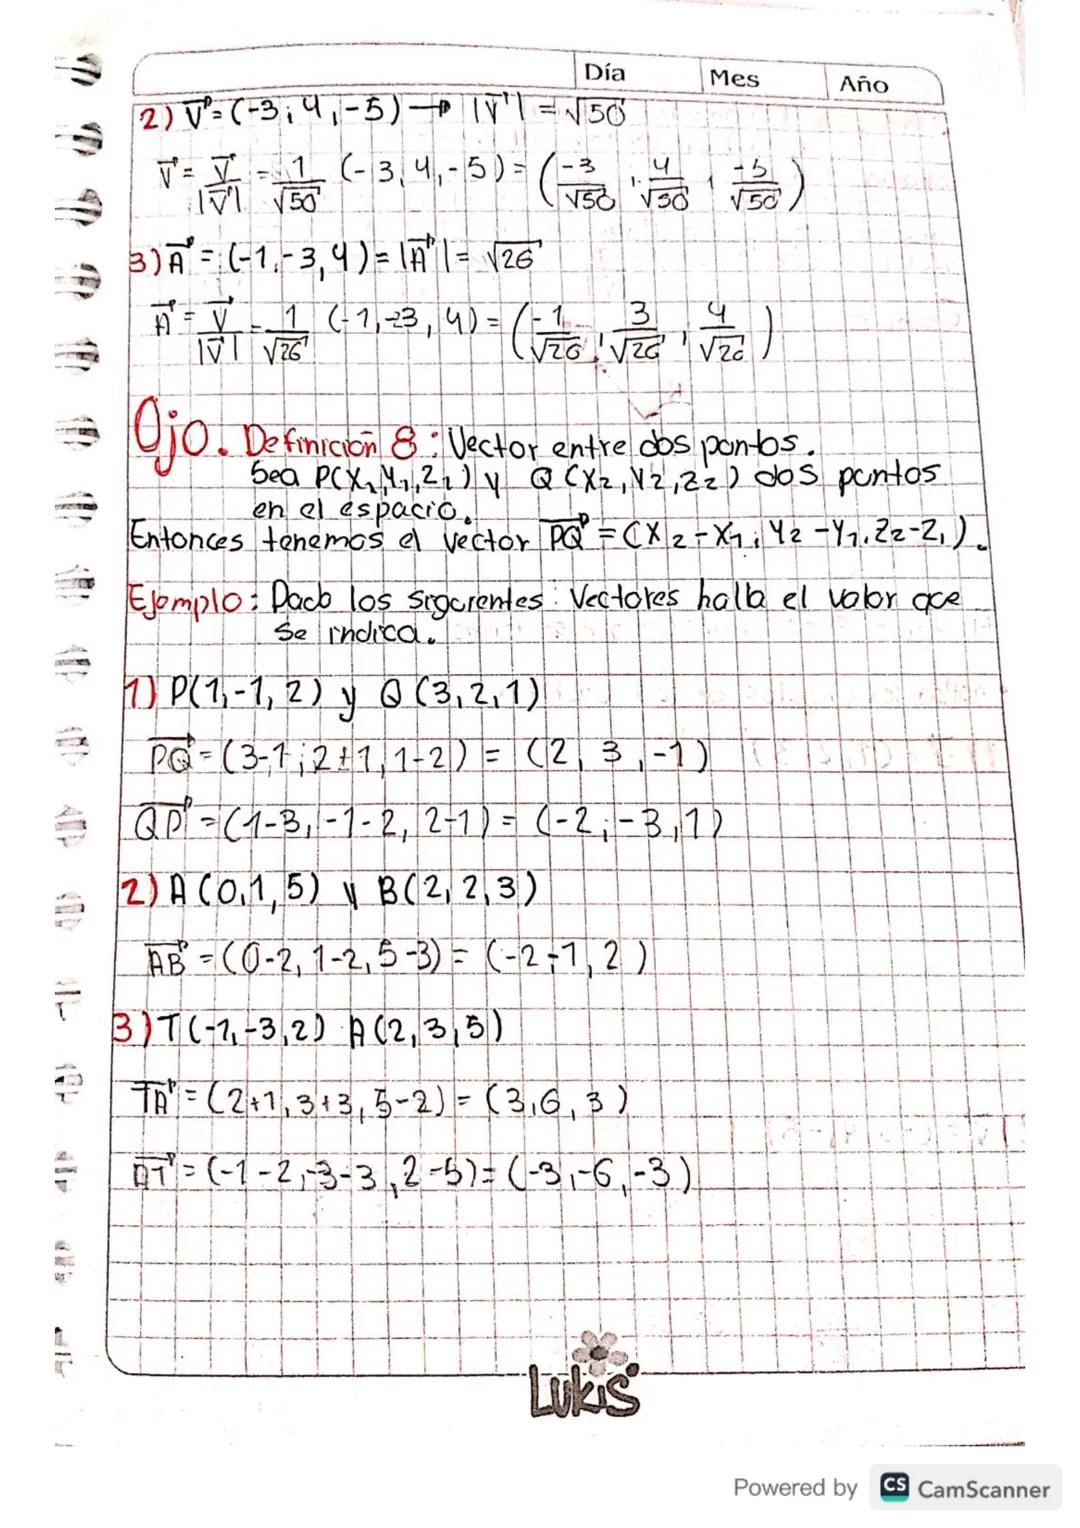 Día Mes Año
2) V⃗=(-3,4,-5) → |V⃗| = √50
V⃗ = V⃗/|V⃗| = 1/√50 (-3,4,-5) = (-3/√50, 4/√50, -5/√50)
3) A⃗ = (-1,-3,4) = |A⃗| = √26
A⃗ = V⃗/|V⃗| = 1/√26 (-1,-3,4) = (-1/√26, 3/√26, 4/√26)
Ojo. Definición 8: Vector entre dos pontos.
Sea P(X₁,Y₁,Z₁) y Q(X₂,Y₂,Z₂) dos puntos
en el espacio.
Entonces tenemos el vector PQ⃗ = (X₂-X₁, Y₂-Y₁, Z₂-Z₁).
Ejemplo: Dado los siguientes Vectores halla el valor que
se indica.
1) P(1,-1,2) y Q(3,2,1)
PQ⃗ = (3-1,2+1,1-2) = (2,3,-1)
QP⃗ = (1-3,-1-2,2-1) = (-2,-3,1)
2) A(0,1,5) y B(2,2,3)
AB⃗ = (0-2,1-2,5-3) = (-2-1,2)
3) T(-1,-3,2) A(2,3,5)
TA⃗ = (2+1,3+3,5-2) = (3,6,3)
AT⃗ = (-1-2,-3-3,2-5) = (-3,-6,-3)
Lukis
Powered by CS CamScanner